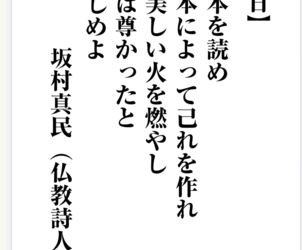 日】
本を読め
本によって己れを作れ
美しい火を燃やし
は尊かったと
しめよ
坂村真民（仏教詩人